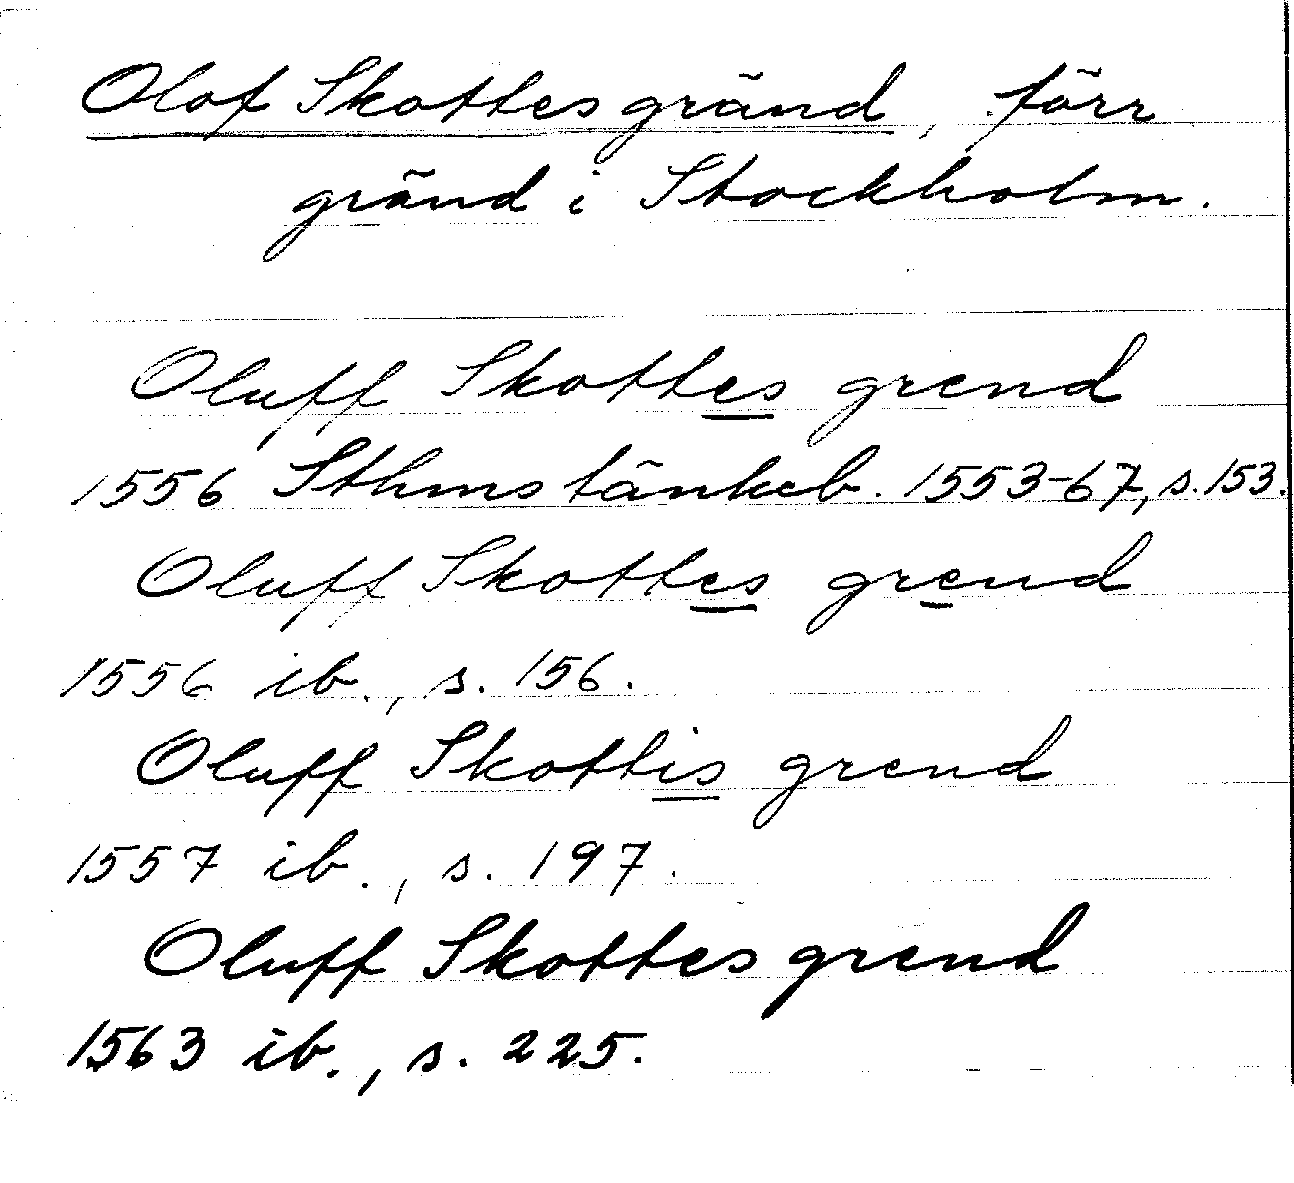 Olof Skottes gränd, förr
gränd i Stockholm.
Oluff Skottes grend
1556 Sthms tänkeb. 1553-67, s. 153.
Oluff Skottes grend
1556 ib., s. 156.
Oluff Skottis grend
1557 ib., s. 197.
Oluff Skottes grend
1563 ib., s. 225.